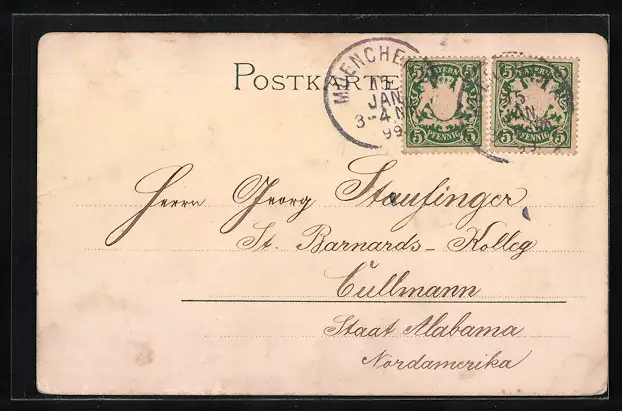 POSTKARTE
MUENCHEN
JAN
3-4 N
99
5 BAYERN 5
5 PFENNIG 5
5 BAYERN 5
5 PFENNIG 5
Herrn Georg Staufinger
St. Barnards-Kolleg
Cullmann
Staat Alabama
Nordamerika